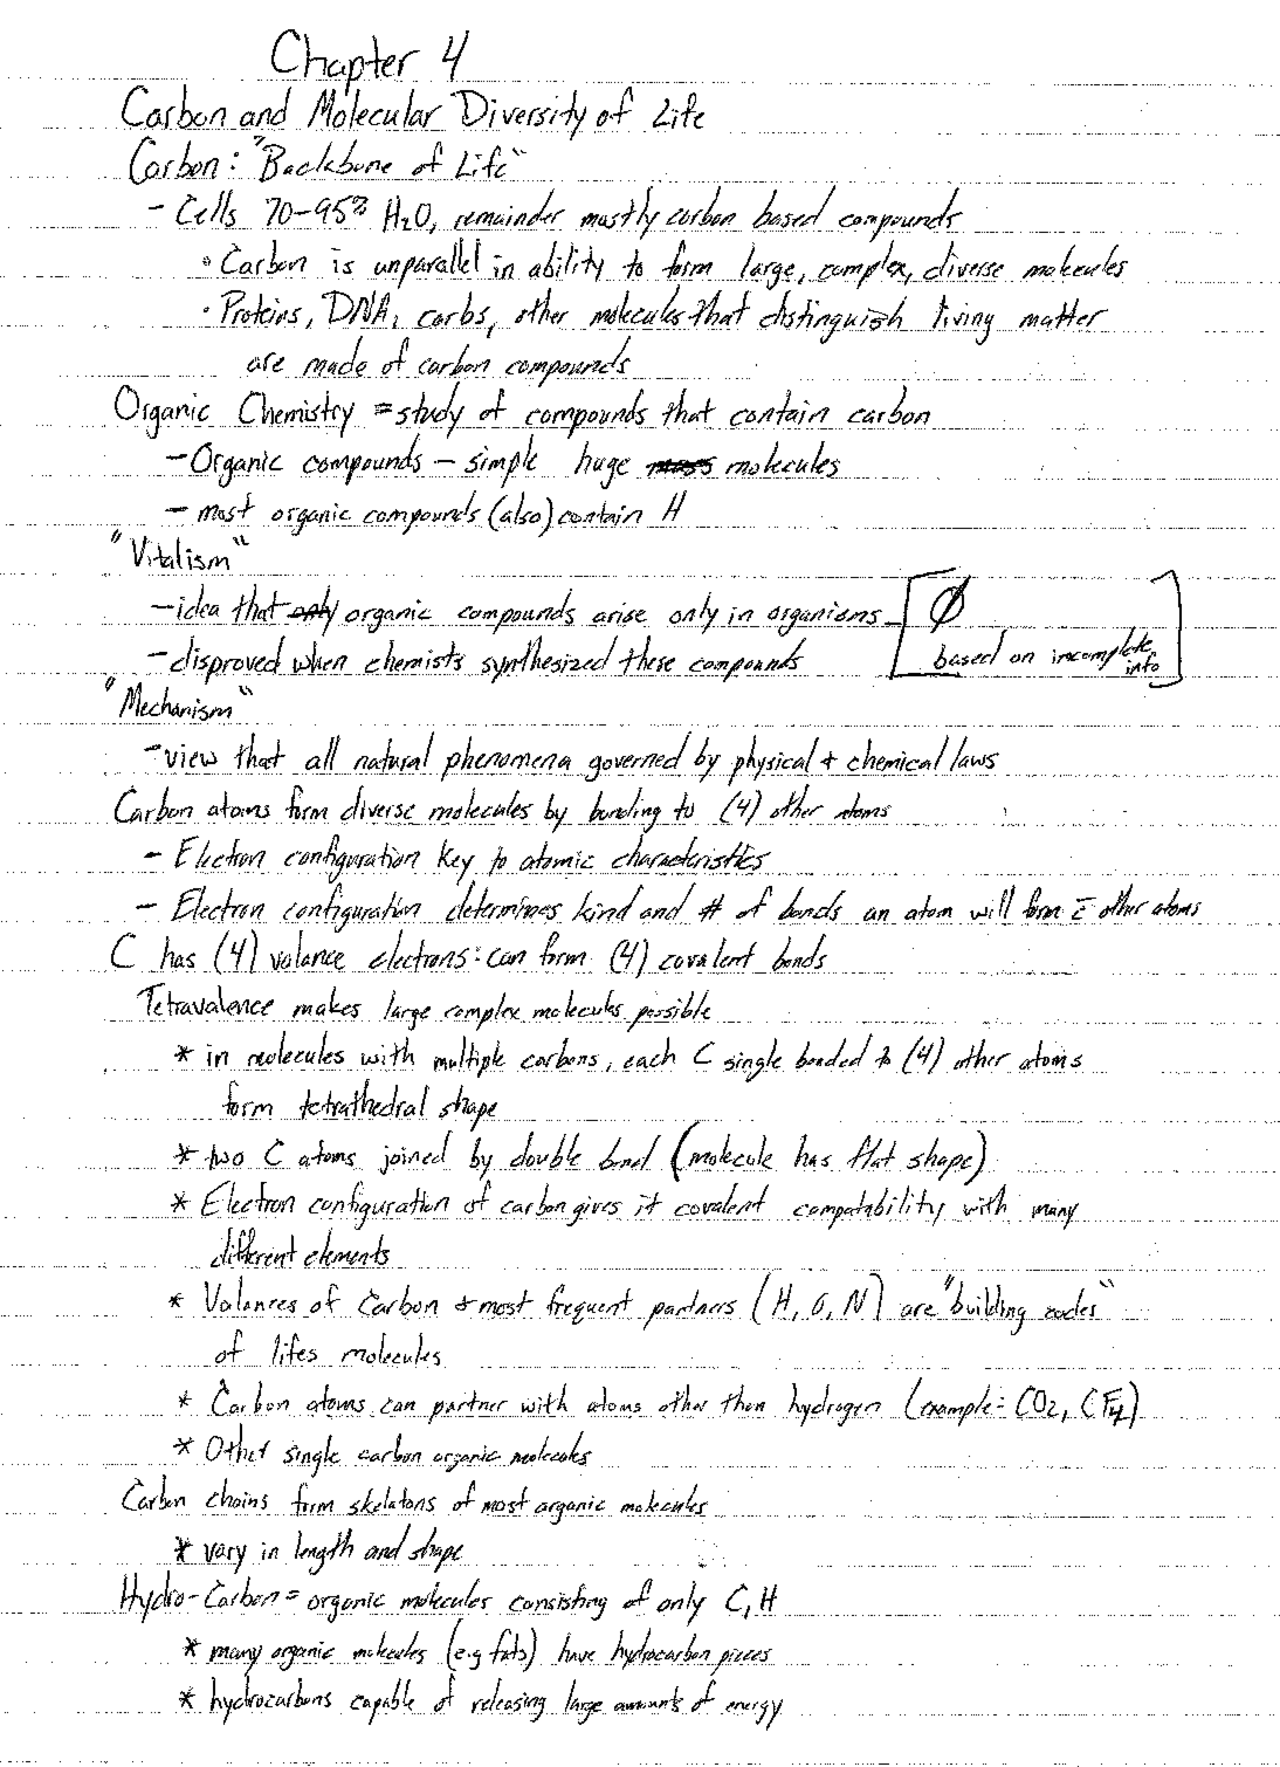 Chapter 4
Carbon and Molecular Diversity of Life
Carbon: "Backbone of Life"
- Cells 70-95% H₂O, remainder mostly carbon based compounds
• Carbon is unparallel in ability to form large, complex, diverse molecules
• Proteins, DNA, carbs, other molecules that distinguish living matter
are made of carbon compounds
Organic Chemistry = study of compounds that contain carbon
- Organic compounds - simple huge mass molecules
- most organic compounds (also) contain H
"Vitalism"
- idea that only organic compounds arise only in organisms - [∅
- disproved when chemists synthesized these compounds
based on incomplete info]
"Mechanism"
- view that all natural phenomena governed by physical + chemical laws
Carbon atoms form diverse molecules by bonding to (4) other atoms
- Electron configuration key to atomic characteristics
- Electron configuration determines kind and # of bonds an atom will form c̄ other atoms
C has (4) valance electrons: can form (4) covalent bonds
Tetravalence makes large complex molecules possible
* in molecules with multiple carbons, each C single bonded to (4) other atoms
form tetrathedral shape
* two C atoms joined by double bond (molecule has flat shape)
* Electron configuration of carbon gives it covalent compatability with many
different elements
* Valances of Carbon + most frequent partners (H, O, N) are "building codes"
of lifes molecules
* Carbon atoms can partner with atoms other than hydrogen (example: CO₂, CF₄)
* Other single carbon organic molecules
Carbon chains form skelatons of most organic molecules
* vary in length and shape
Hydro-Carbon = organic molecules consisting of only C, H
* many organic molecules (e.g fats) have hydrocarbon pieces
* hydrocarbons capable of releasing large amounts of energy